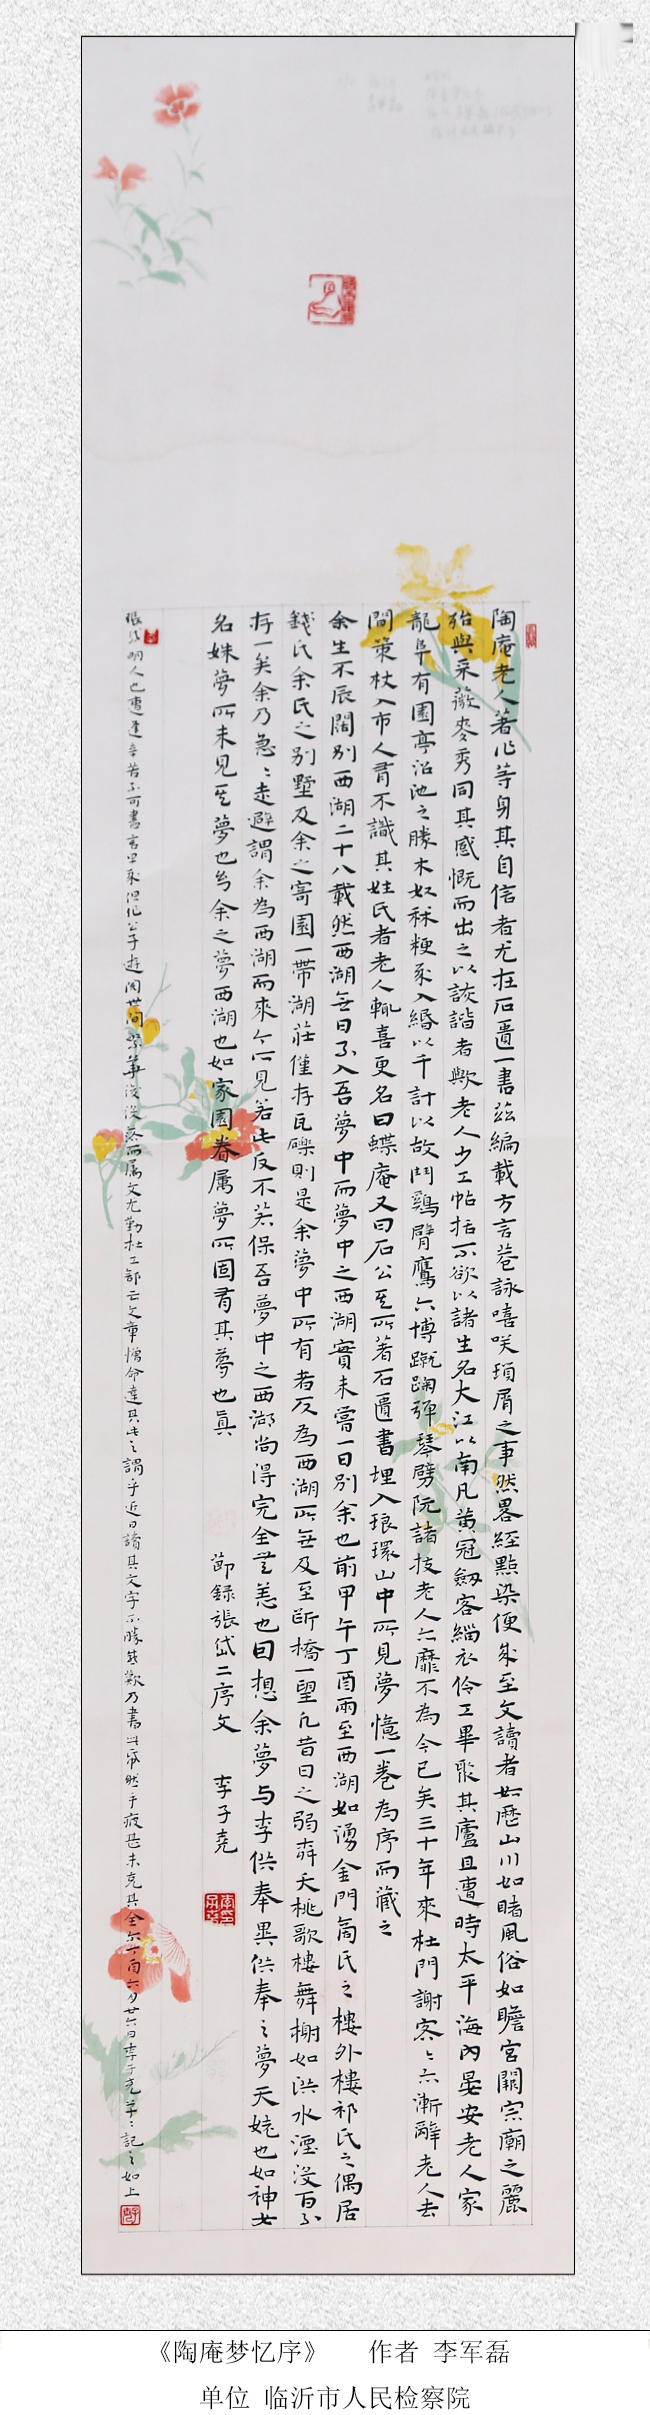 陶庵老人著作等身其自信者尤在石匱一書茲編載方言巷詠嘻咲瑣屑之事然畧經點染便成至文讀者如歷山川如睹風俗如瞻宮闕宗廟之麗
殆與采薇麥秀同其感慨而出之以詼諧者歟老人少工帖括不欲以諸生名大江以南凡黃冠劒客緇衣伶工畢聚其廬且遭時太平海內晏安老人家
龍阜有園亭沼池之勝木奴秫粳歲入緡以千計以故鬥鷄臂鷹六博蹴踘彈琴劈阮諸技老人亦靡不為今已矣三十年來杜門謝客客亦漸辭老人去
間策杖入市人有不識其姓氏者老人輒喜更名曰蝶庵又曰石公其所著石匱書埋入琅環山中所見夢憶一卷為序而藏之
余生不辰闊別西湖二十八載然西湖無日不入吾夢中而夢中之西湖實未嘗一日別余也前甲午丁酉兩至西湖如湧金門商氏之樓外樓祁氏之偶居
錢氏余氏之別墅及余之寄園一帶湖莊僅存瓦礫則是余夢中所有者反為西湖所無及至斷橋一望凡昔日之弱柳夭桃歌樓舞榭如洪水湮沒百不
存一矣余乃急急走避謂余為西湖而來今所見若此反不若保吾夢中之西湖尚得完全無恙也因想余夢与李供奉異供奉之夢天姥也如神女
名姝夢所未見其夢也幻余之夢西湖也如家園眷屬夢所固有其夢也真
節錄張岱二序文 李子堯
張岱明人也遭逢辛苦不可書言早歲但作公子遊閱世間繁華後沒落而属文尤勤杜工部云文章憎命達其此之謂乎近日讀其文字不勝感歎乃書
《陶庵梦忆序》 作者 李军磊
单位 临沂市人民检察院